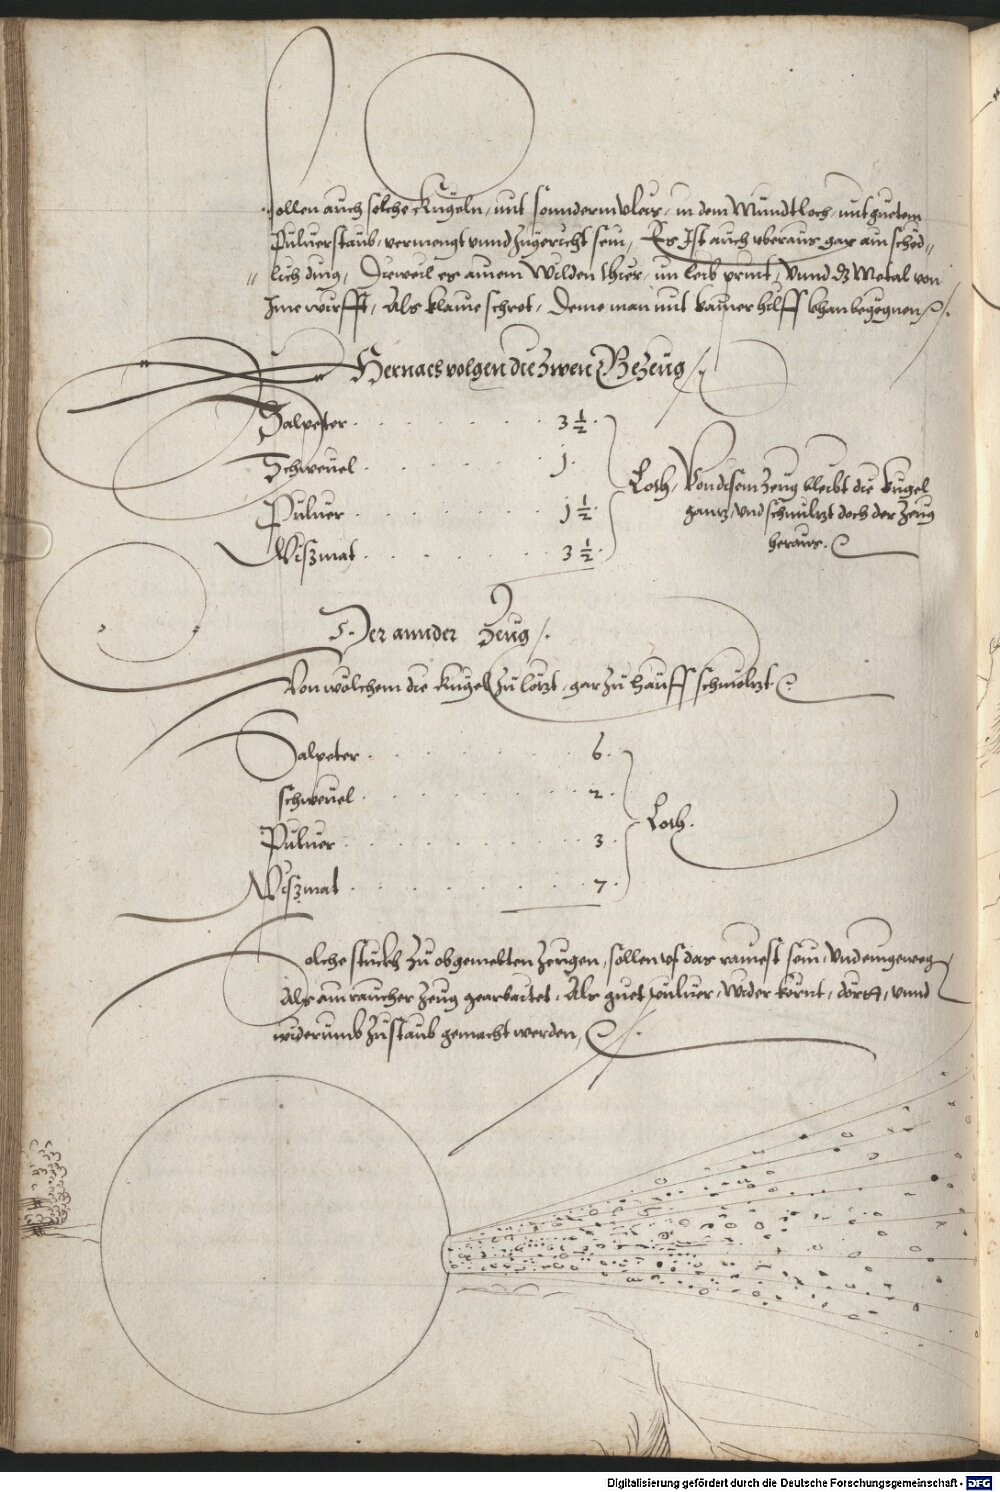 sollen auch solche Kugeln, mit sonnderm vleis, in dem Mundtloch, mit guetem
Puluerstaub, vermengt vnnd Zugericht sein, Es Ist auch vberaus gar ain sched„
„lich ding, Dieweil es ainem Wilden thier, im leib print, Vnnd dz Metal von
Ime wirfft, Als klaine schrot, Deme man mit kainer hilff khan begegnen /.
Hernach volgen die Zwen Bezeug /.
Salpeter . . . . . . 3 ½ .
Schweuel . . . . . . j .
Puluer . . . . . . j ½ .
Wißmat . . . . . . 3 ½ .
Loth, Von disem Zeug bleibt die Kugel
gantz, Vnd schmiltzt doch der Zeug
heraus.
Der annder Zeug /.
Von wölchem die Kugel Zu letzt, gar Zu hauff schmeltzt
Salpeter . . . . . . 6 .
schweuel . . . . . . 2 .
Puluer . . . . . . 3 .
Wißmat . . . . . . 7 .
Loth .
Solche stuckh Zu obgemelten Zeugen, sollen vf das rainest sein, Vnd eingeweg
Als ain raucher Zeug gearbaitet, Als guet puluer, Wider körnt, dörtt, vnnd
widerumb Zu staub gemacht werden,
Digitalisierung gefördert durch die Deutsche Forschungsgemeinschaft - DFG